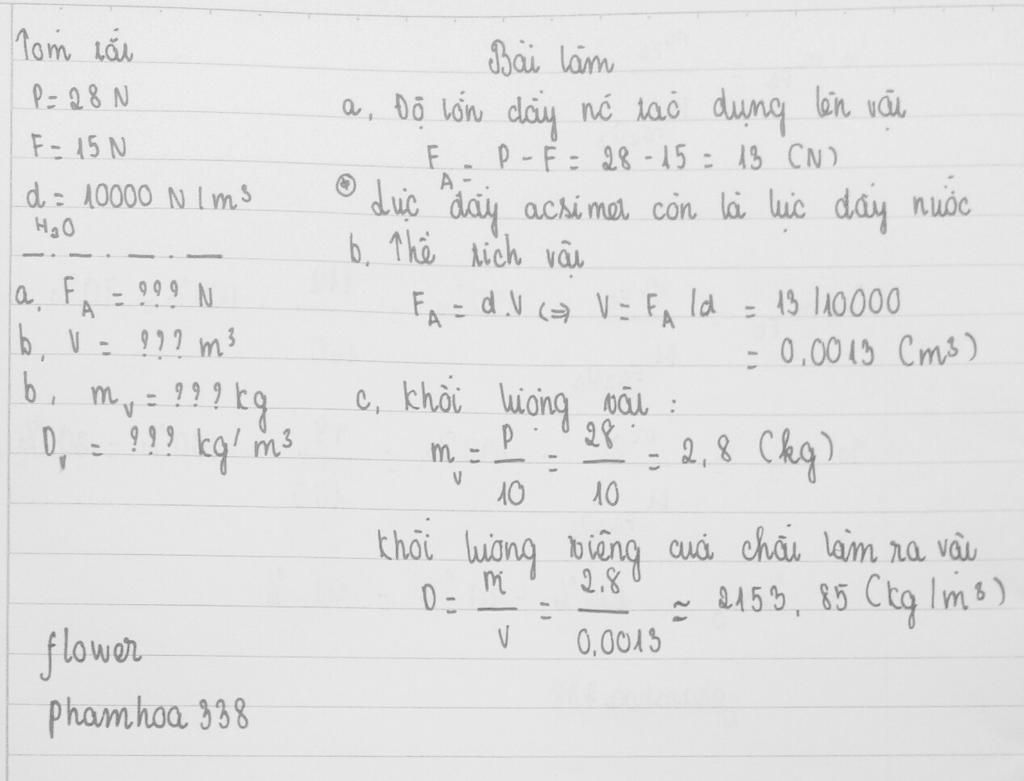 Tóm tắt
P = 28 N
F = 15 N
d H₂O = 10000 N/m³
a, F_A = ??? N
b, V = ??? m³
b, m_v = ??? kg
D_v = ??? kg/m³
flower
phamhoa 338
Bài làm
a, Độ lớn đẩy nc tác dụng lên vật
F_A = P - F = 28 - 15 = 13 (N)
* Lực đẩy acsimet còn là lực đẩy nước
b, Thể tích vật
F_A = d.V <=> V = F_A/d = 13/10000
= 0,0013 (m³)
c, Khối lượng vật :
m_v = P/10 = 28/10 = 2,8 (kg)
Khối lượng riêng của chất làm ra vật
D = m/V = 2,8/0,0013 ≈ 2153,85 (kg/m³)